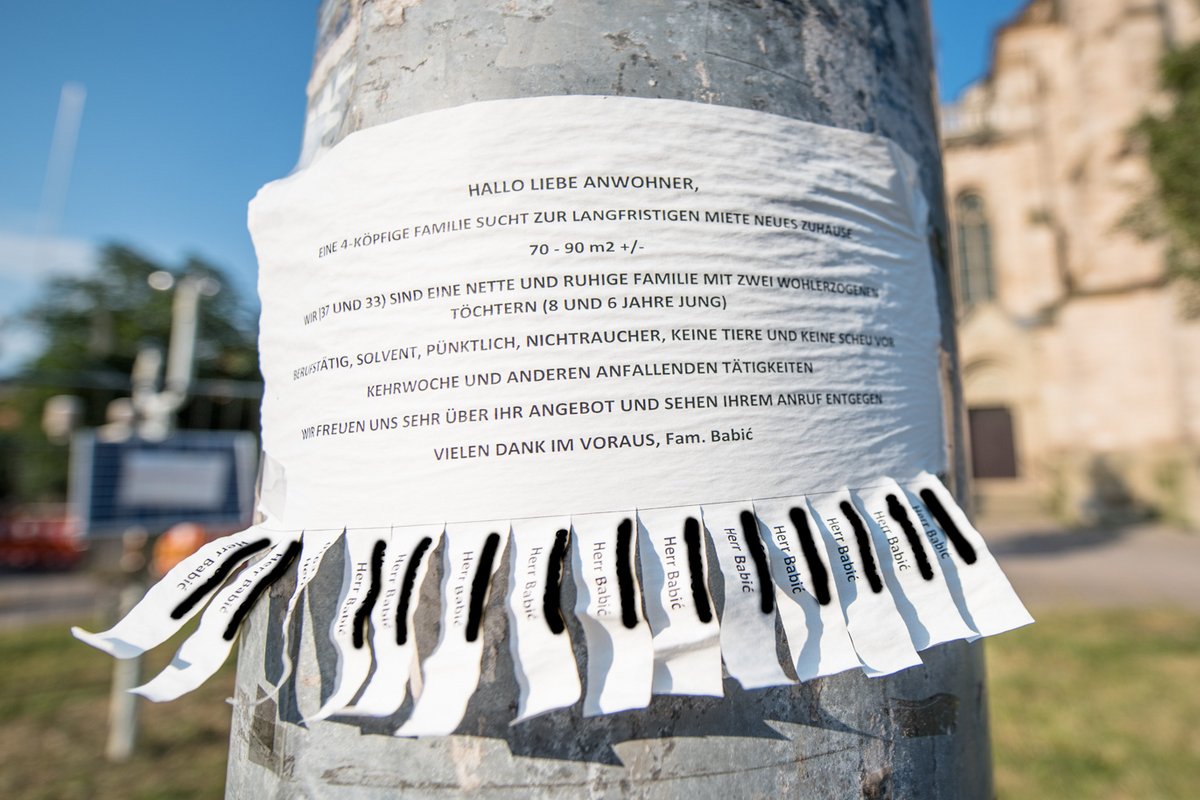 HALLO LIEBE ANWOHNER,
EINE 4-KÖPFIGE FAMILIE SUCHT ZUR LANGFRISTIGEN MIETE NEUES ZUHAUSE
70 - 90 m2 +/-
WIR (37 UND 33) SIND EINE NETTE UND RUHIGE FAMILIE MIT ZWEI WOHLERZOGENEN
TÖCHTERN (8 UND 6 JAHRE JUNG)
BERUFSTÄTIG, SOLVENT, PÜNKTLICH, NICHTRAUCHER, KEINE TIERE UND KEINE SCHEU VOR
KEHRWOCHE UND ANDEREN ANFALLENDEN TÄTIGKEITEN
WIR FREUEN UNS SEHR ÜBER IHR ANGEBOT UND SEHEN IHREM ANRUF ENTGEGEN
VIELEN DANK IM VORAUS, Fam. Babić
Herr Babić
Herr Babić
Herr Babić
Herr Babić
Herr Babić
Herr Babić
Herr Babić
Herr Babić
Herr Babić
Herr Babić
Herr Babić
Herr Babić
Herr Babić